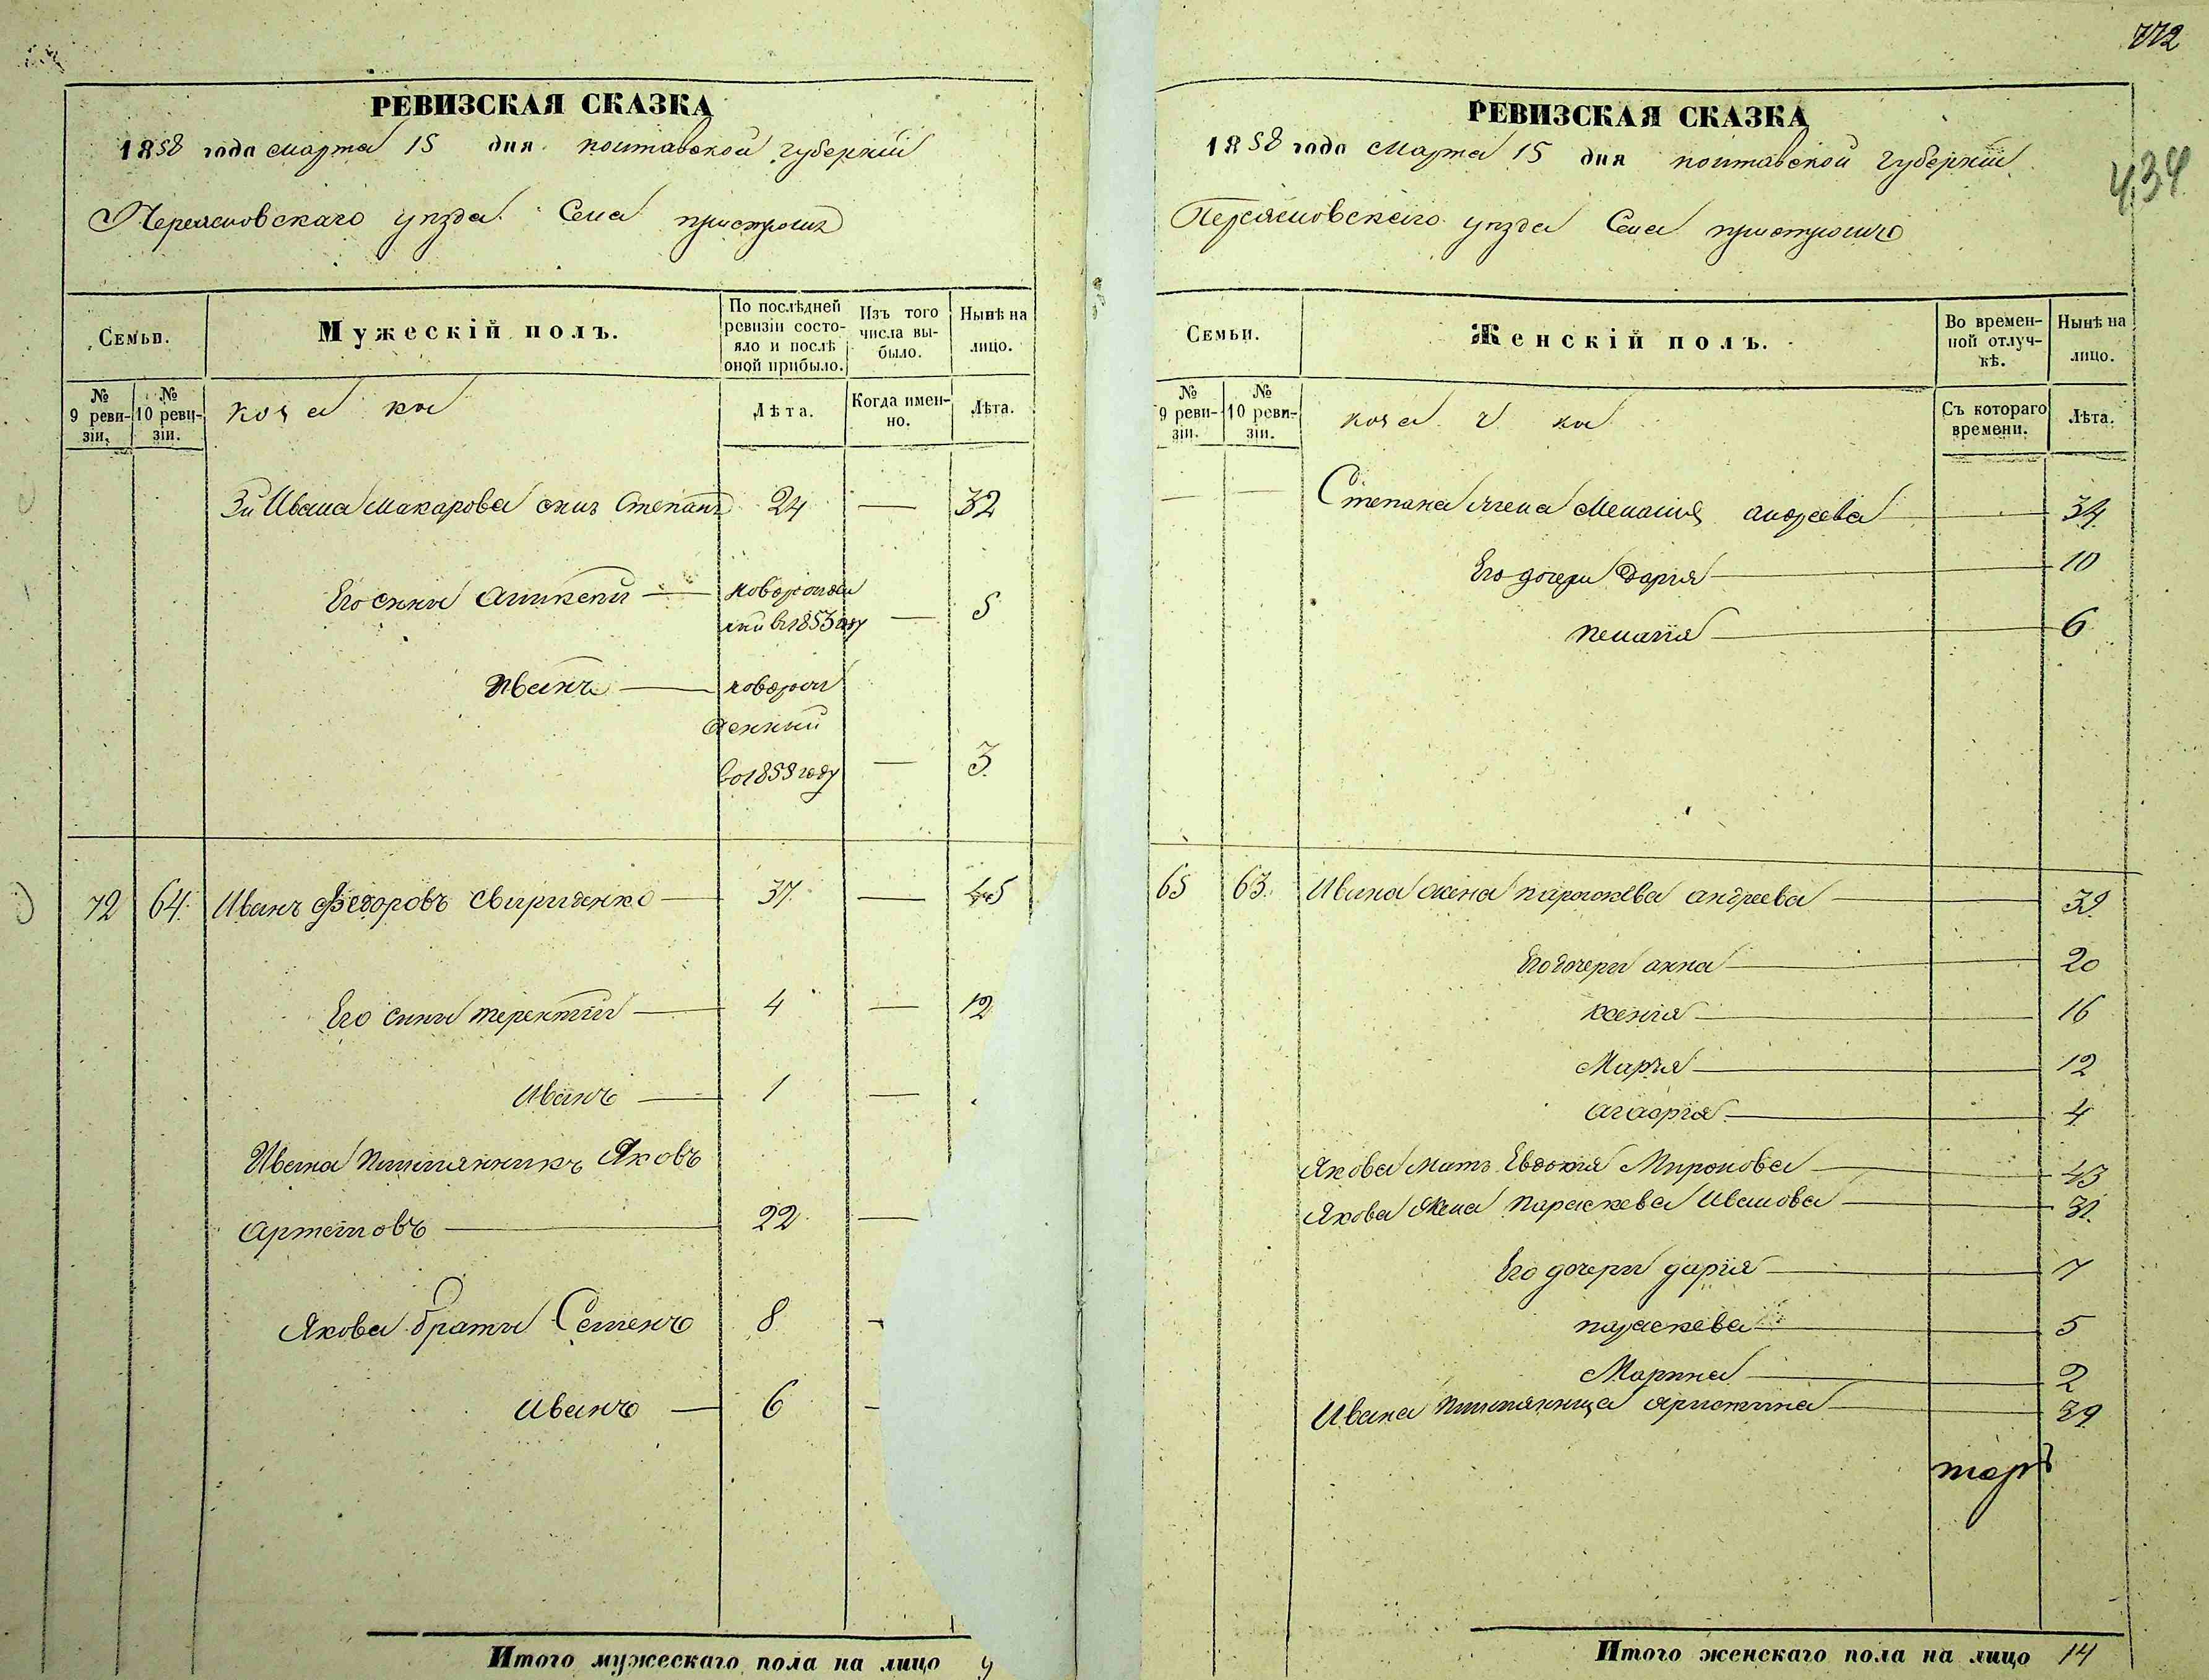 РЕВИЗСКАЯ СКАЗКА
1858 года марта 15 дня полтавской губерніи
Переяславскаго уѣзда Села пристромъ
Семьи.
Мужескій полъ.
По послѣдней ревизіи состояло и послѣ оной прибыло.
Изъ того числа выбыло.
Нынѣ на лицо.
№ 9 ревизіи.
№ 10 ревизіи.
Лѣта.
Когда именно.
Лѣта.
3й Ивана Макарова сынъ Степанъ 24 — 32
Его сыны —
новорожден
ный въ 1853 году — 5
Иванъ — новорож
денный
3
72 64 Иванъ Федоровъ Свириденко — 37 — 45
Его сыны терентій — 4 — 12
Иванъ — 1 —
Ивана племянникъ Яковъ
Артемовъ — 22 —
Якова братья Семенъ 8 -
Иванъ — 6 -
Итого мужескаго пола на лицо
772
434
РЕВИЗСКАЯ СКАЗКА
1858 года Марта 15 дня полтавской губерніи
Переяславскаго уѣзда Села
Семьи.
Женскій полъ.
Во временной отлучкѣ.
Нынѣ на лицо.
№ 9 ревизіи.
№ 10 ревизіи.
Съ котораго времени.
Лѣта.
— — Степана жена Меланія андреева — 34
Его дочери Дарія — 10
пелагія — 6
65 63. Ивана жена параскева андреева — 39
Его дочери анна — 20
ксенія — 16
Марія — 12
агафія — 4
Якова мать Евдокія Миронова — 43
Якова жена Параскева Иванова — 31
Его дочери дарія — 7
параскева — 5
Марина — 2
Ивана племянница — 39
Итого женскаго пола на лицо 14